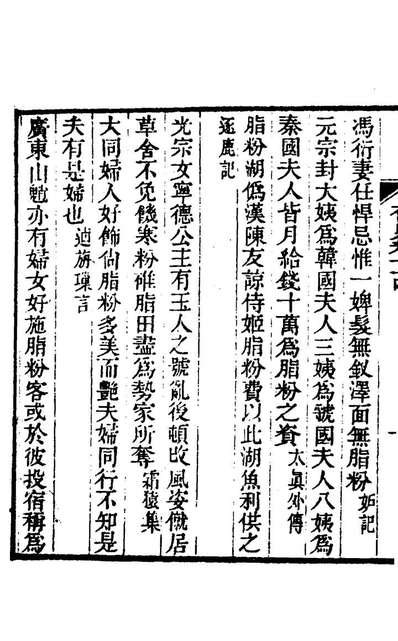 馮衍妻任悍忌惟一婢髮無釵澤面無脂粉妬記
元宗封大姨爲韓國夫人三姨爲虢國夫人八姨爲
秦國夫人皆月給錢十萬爲脂粉之資太眞外傳
脂粉湖僞漢陳友諒侍姬脂粉費以此湖魚利供之
逐鹿記
光宗女寧德公主有玉人之號亂後頓改風姿僦居
草舍不免饑寒粉碓脂田盡爲勢家所奪霜猿集
大同婦人好飾尙脂粉多美而艷夫婦同行不知是
夫有是婦也
廣東山魈亦有婦女好施脂粉客或於彼投宿稱爲